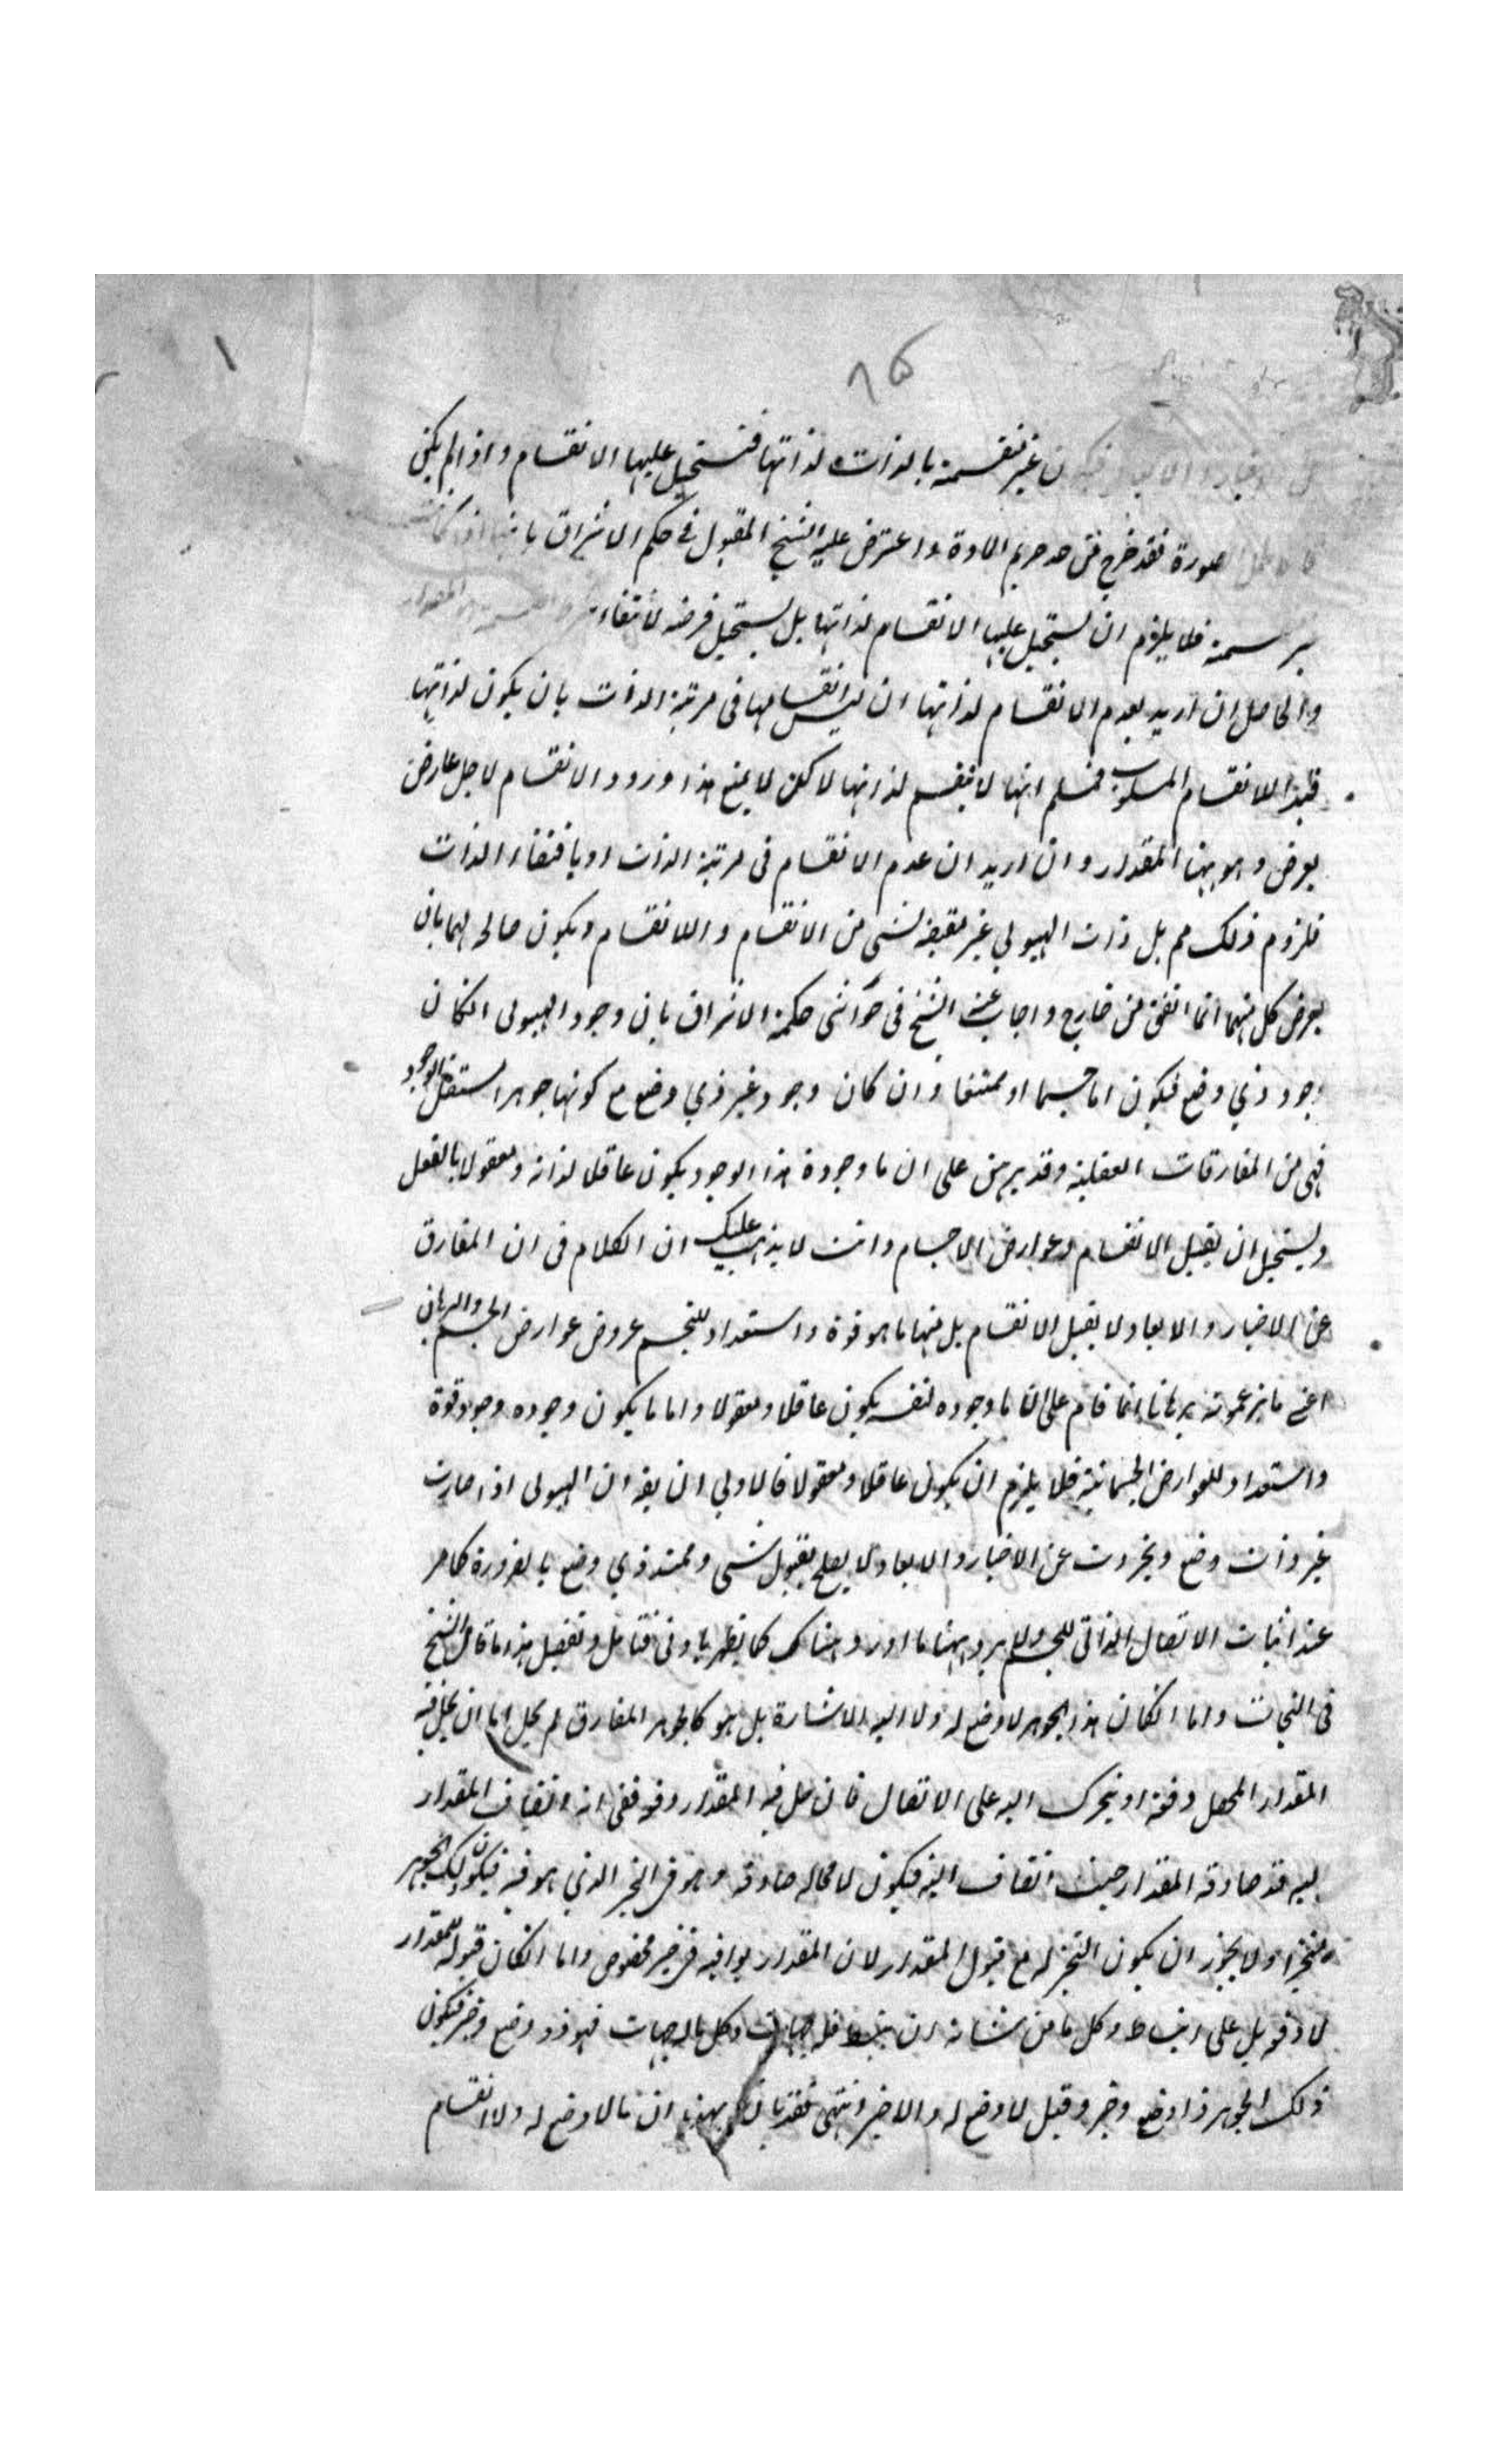 ٨٥
ن غير منقسمة بالذات لذاتها فتستحيل عليها الانقسام واذا لم يكن
صورة فقد خرج من حد حريم المادة واعترض عليه الشيخ المقبول في حكم الاشراق بانها اذا كانت
فلا يلزم ان يستحيل عليها الانقسام لذاتها بل يستحيل فرضه لانتفاء المقدار
والحاصل ان اريد بعدم الانقسام لذاتها ان ليس انقسامها في مرتبة الذات بان يكون لذاتها
فهذا اللا نقسام المسلوب فمسلم انها لا تنقسم لذاتها لاكن لا يمنع هذا ورود الانقسام لاجل عارض
يعرض وهو ههنا المقدار وان اريد ان عدم الانقسام في مرتبة الذات او باقتضاء الذات
فلزوم ذلك مم بل ذات الهيولي غير مقتضية لشي من الانقسام واللا نقسام ويكون صالحا لهما بان
يعرض كل منهما انما اتفق من خارج واجاب عنه الشيخ في حواشي حكمة الاشراق بان وجود الهيولى انكان
وجود ذي وضع فيكون اما جسما او ممتنعا وان كان وجود غير ذي وضع مع كونها جوهرا مستقل الوجود
فهي من المفارقات العقلية وقد برهن على ان ما وجوده هذا الوجود يكون عاقلا لذاته ومعقولا بالفعل
ويستحيل ان يقبل الانقسام وعوارض الاجسام وانت لا يذهب عليك ان الكلام في ان المفارق
عن الاخيار والابعاد لا يقبل الانقسام بل منها ما هو قوة واستعداد للتجسم عروض عوارض الجسم والبرهان
اعني ما يزعموته برهانا انما قام على ان ما وجوده لنفسه يكون عاقلا ومعقولا واما ما يكون وجوده وجود قوة
واستعداد للعوارض الجسمانية فلا يلزم ان يكون عاقلا ومعقولا فالاولي ان يقو ان الهيولى اذا صارت
غير ذات وضع وتجردت عن الاخيار والابعاد لا يصلح لقبول شي وممتد ذي وضع بالضرورة كما مر
عند اثبات الاتصال الذاتي للجسم ولا يرد ههنا ما اورد هناك كما يظهر بادنى تامل وتفصيل هذا ما قال الشيخ
في النجات واما انكان هذا الجوهر لا وضع له ولا اليه الاشارة بل هو كالجوهر المفارق لم يخل اما ان يحل فيه
المقدار المحصل دفعة او يتحرك اليه على الاتصال فان حل فيه المقدار دفعة ففي انه انضاف المقدار
اليه قد صادفه المقدار حيث انضاف اليه فيكون لا محاله صادفه وهو في الحيز الذي هو فيه فيكون ذلك الجوهر
متحيزا ولا يجوز ان يكون التحيز له مع قبول المقدار لان المقدار يوافيه في حيز مخصوص واما انكان قبوله للمقدار
لا دفعة بل على انبساط وكل ما من شانه ان ينبسط فله جهات وكل ماله جهات فهو ذو وضع وحيز فيكون
ذلك الجوهر ذا وضع وحيز وقيل لا وضع له ولا حيز انتهى فقد بان بهذا ان ما لا وضع له ولا انقسام